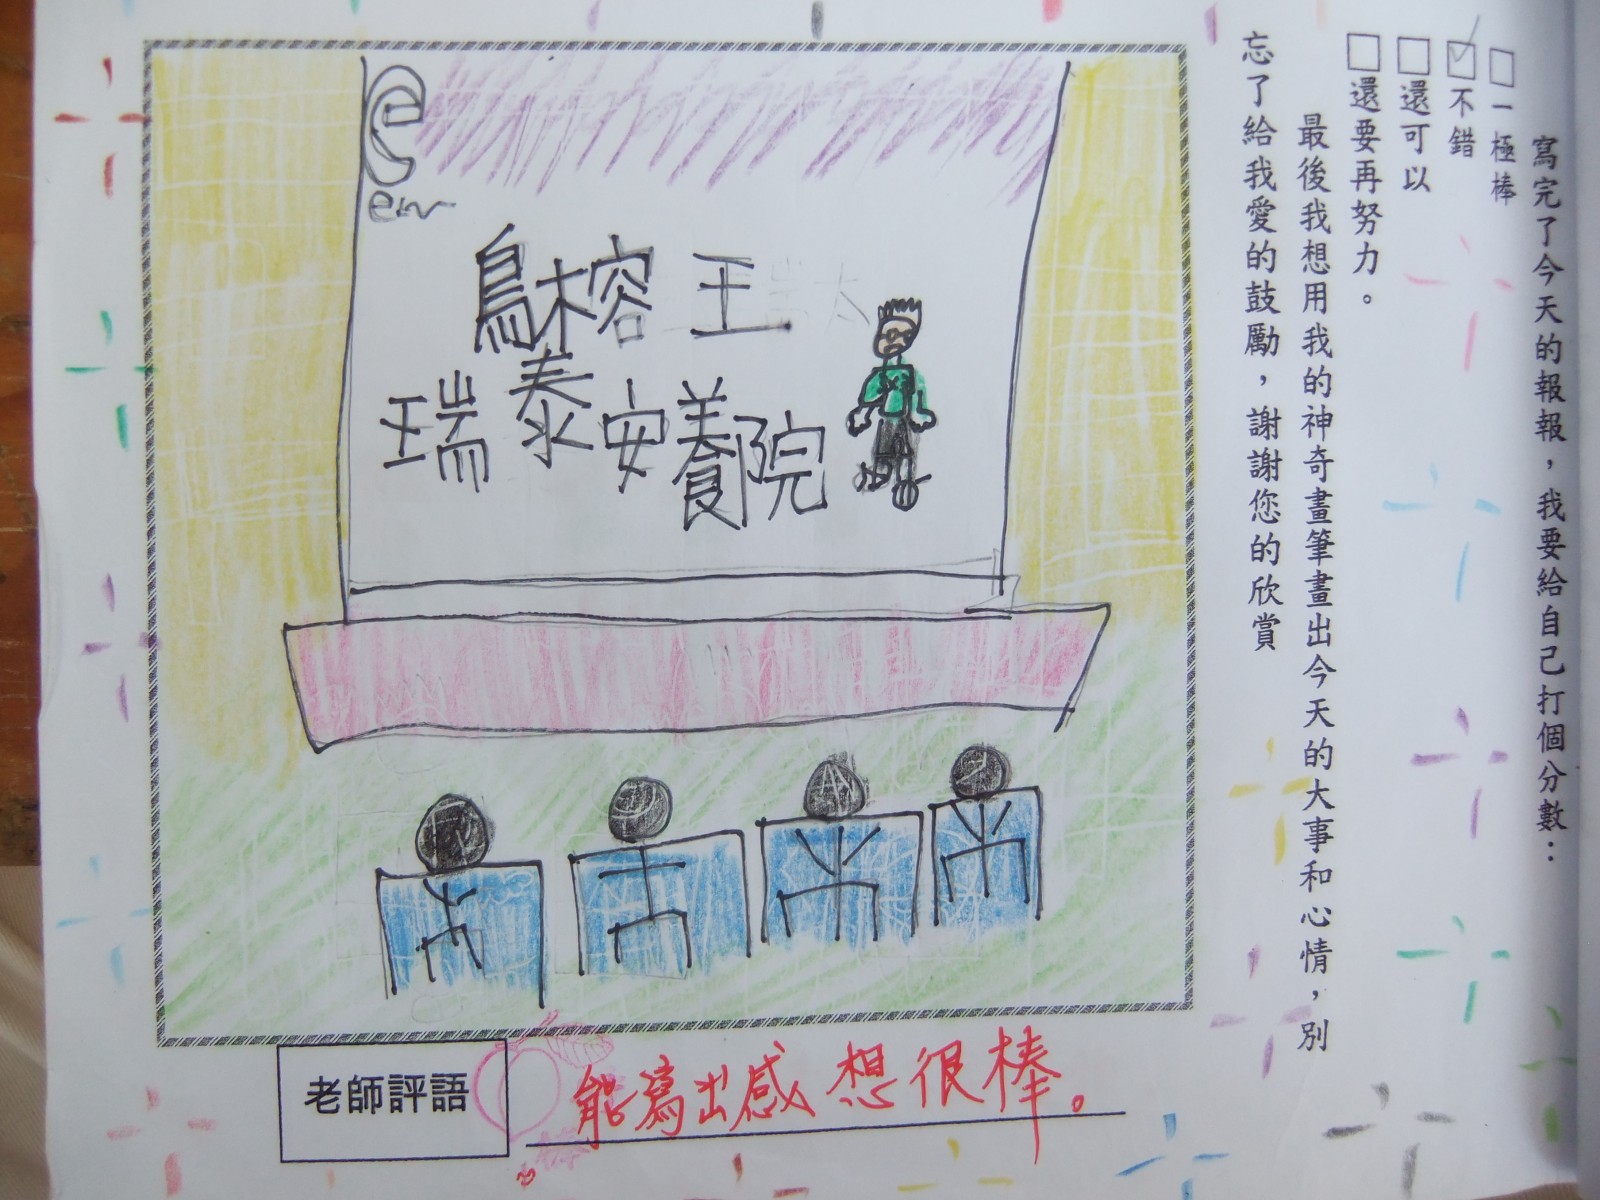 寫完了今天的報報，我要給自己打個分數：
□一極棒
☑不錯
□還可以
□還要再努力。
最後我想用我的神奇畫筆畫出今天的大事和心情，別
忘了給我愛的鼓勵，謝謝您的欣賞
鳥榕王
瑞泰安養院
老師評語
能寫出感想很棒。